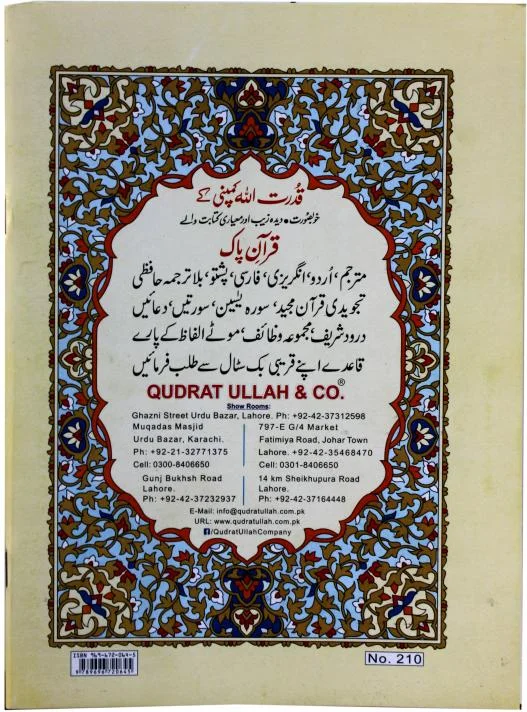 قدرت اللہ کمپنی کے
خوبصورت • دیدہ زیب اور معیاری کتابت والے
قرآن پاک
مترجم، اُردو، انگریزی، فارسی، پشتو، بلا ترجمہ حافظی
تجویدی قرآن مجید، سورہ یٰسین، سورتیں، دعائیں
درود شریف، مجموعہ وظائف، موٹے الفاظ کے پارے
قاعدے اپنے قریبی بک سٹال سے طلب فرمائیں
QUDRAT ULLAH & CO.®
Show Rooms:
Ghazni Street Urdu Bazar, Lahore. Ph: +92-42-37312598
Muqadas Masjid
Urdu Bazar, Karachi.
Ph: +92-21-32771375
Cell: 0300-8406650
797-E G/4 Market
Fatimiya Road, Johar Town
Lahore. +92-42-35468470
Cell: 0301-8406650
Gunj Bukhsh Road
Lahore.
Ph: +92-42-37232937
14 km Sheikhupura Road
Lahore.
Ph: +92-42-37164448
E-Mail: info@qudratullah.com.pk
URL: www.qudratullah.com.pk
/QudratUllahCompany
ISBN 969-672-064-5
9 789696 720645
No. 210